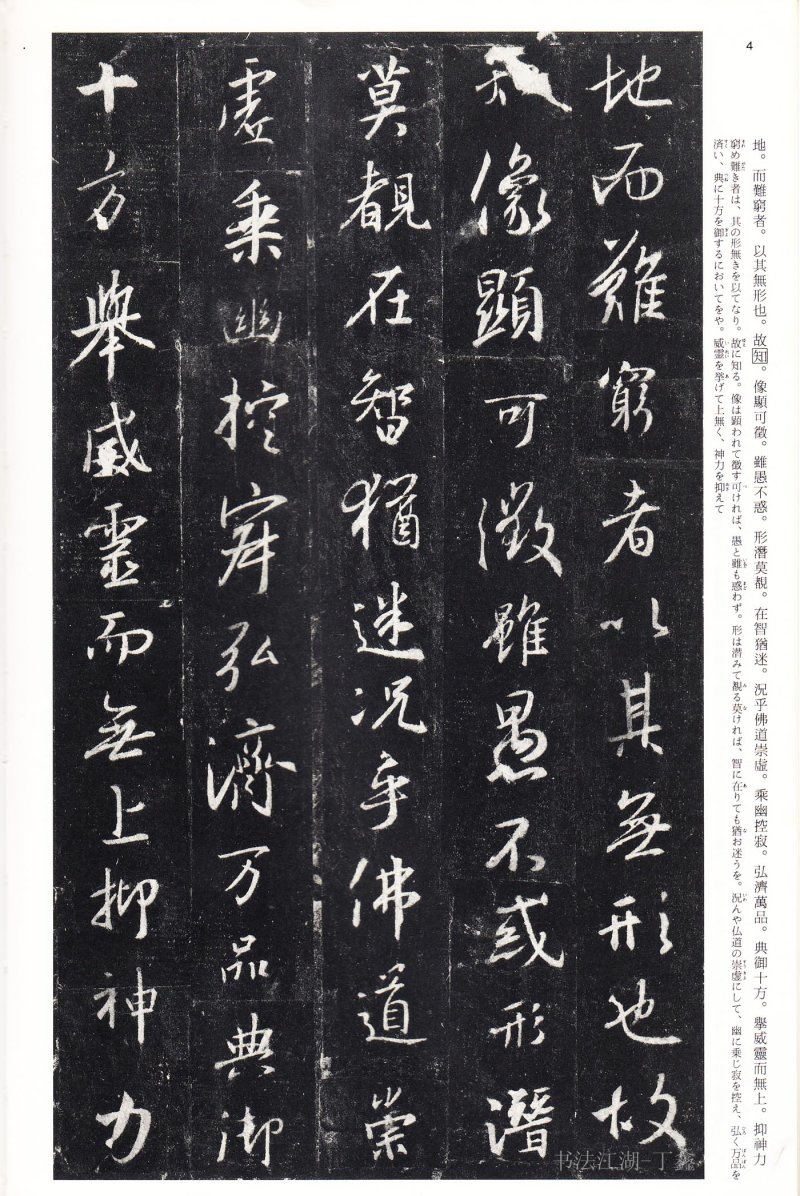 4
地。而難窮者。以其無形也。故知。像顯可徵。雖愚不惑。形潛莫覩。在智猶迷。況乎佛道崇虛。乘幽控寂。弘濟萬品。典御十方。擧威靈而無上。抑神力
窮め難き者は、其の形無きを以てなり。故に知る。像は顕われて徴す可ければ、愚と雖も惑わず。形は潜みて覩る莫ければ、智に在りても猶お迷うを。況んや仏道の崇虚にして、幽に乗じ寂を控え、弘く万品を
済い、典に十方を御するにおいてをや。威霊を挙げて上無く、神力を抑えて
地而難窮者以其無形也故
像顯可徵雖愚不惑形潛
莫覩在智猶迷況乎佛道崇
虛乘幽控寂弘濟万品典御
十方舉威靈而無上抑神力
书法江湖-丁鑫